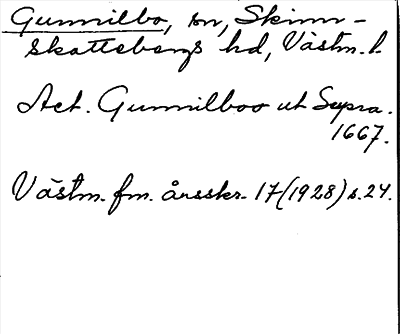 Gunnilbo, sn, Skinn-
skattebergs hd, Västm. l.
Act. Gunnilboo ut Supra.
1667.
Västm. fm. årsskr. 17 (1928) s. 24.